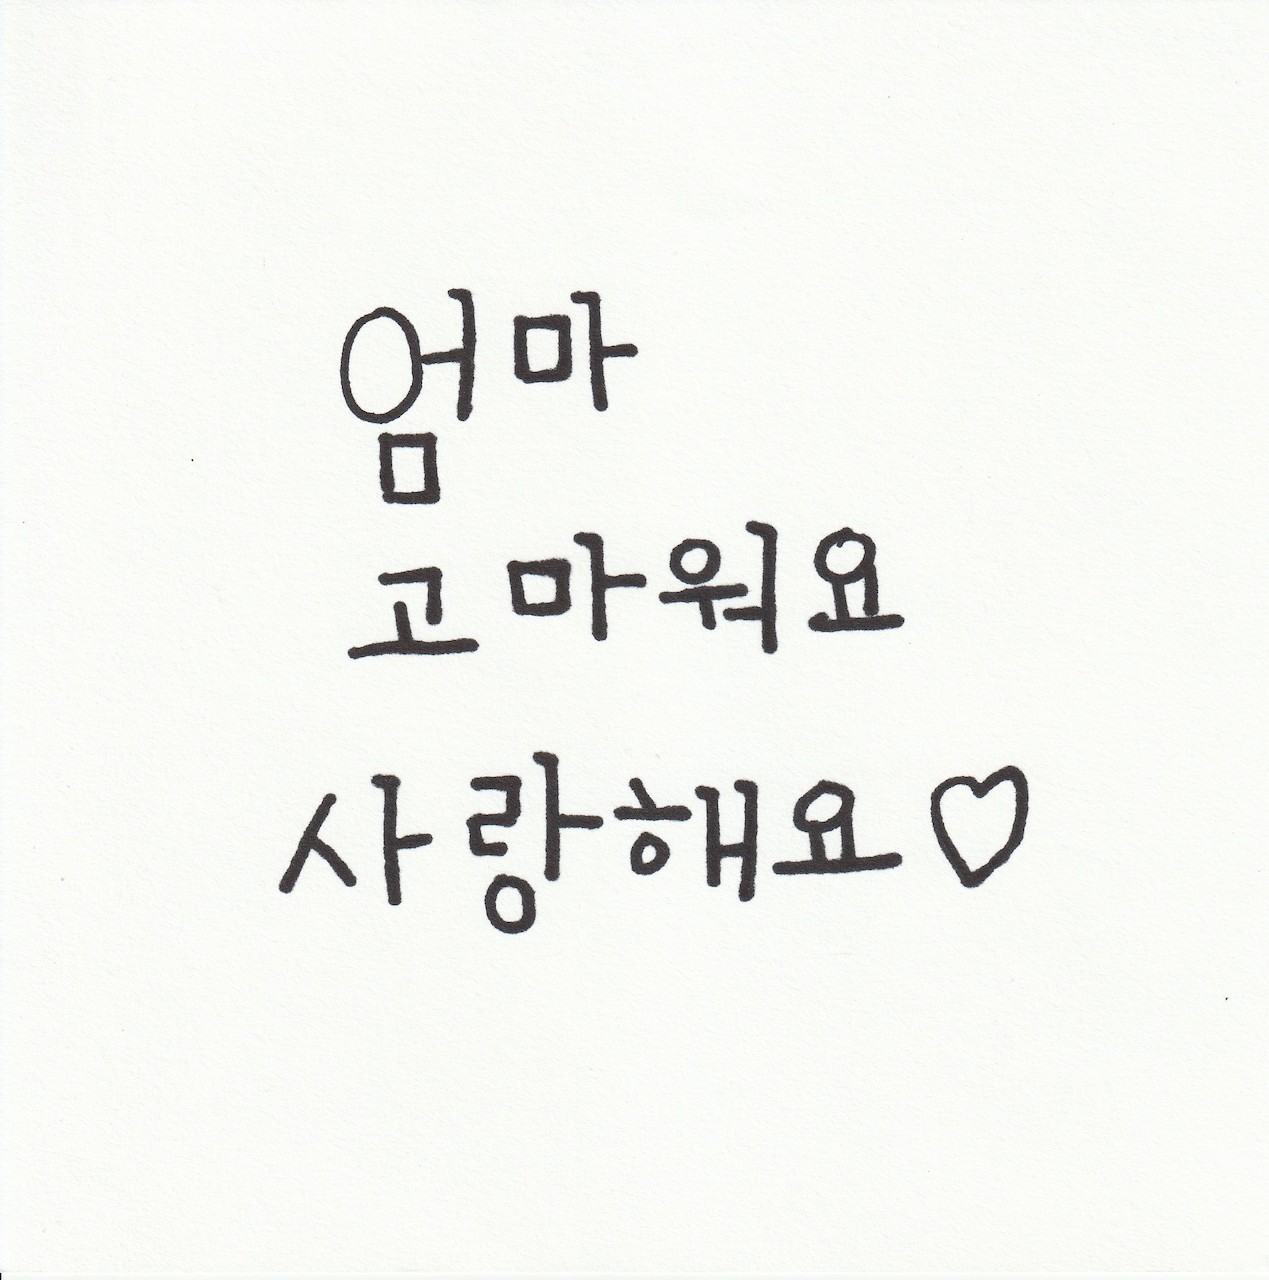 엄마
고마워요
사랑해요♡